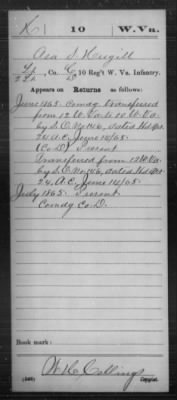 K 10 W.Va.
Asa S. Hugill
Lt., Co. C
2 Lt. D, 10 Reg't W. Va. Infantry.
Appears on Returns as follows:
June 1865. Comdg transferred
from 12 W.Va to 10 W.Va
by S.O. No 146, dated Hd Qrs
24 A.C. June 14/65.
(Co. D) Present
Transferred from 12 W.Va
by S.O. No 146, dated Hd Qrs
24 A.C. June 14/65
July 1865. Present
Comdg Co. D.
Book mark:
W.H. Collings
Copyist.